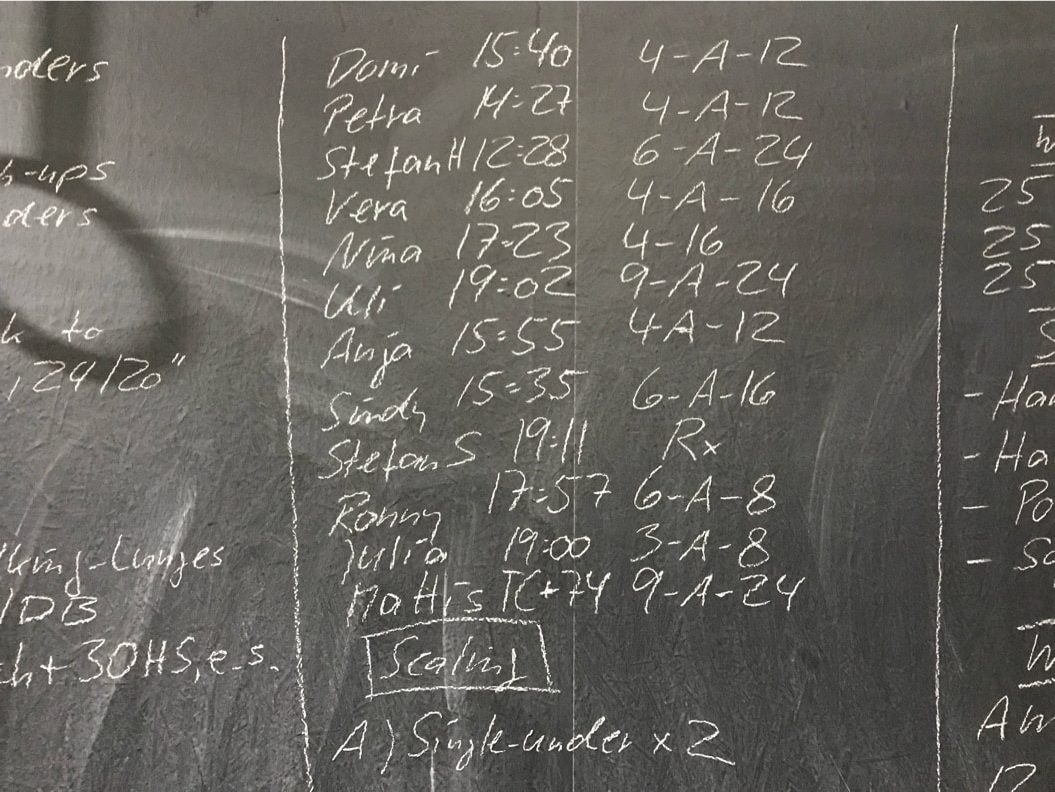 Domi 15:40 4-A-12
Petra 14:27 4-A-12
Stefan H 12:28 6-A-24
Vera 16:05 4-A-16
Nina 17:23 4-16
Uli 19:02 9-A-24
Anja 15:55 4-A-12
Sindy 15:35 6-A-16
Stefan S 19:11 Rx
Ronny 17:57 6-A-8
Julia 19:00 3-A-8
Mattis TC+74 9-A-24
Scaling
A) Single-under x 2
nders
h-ups
ders
k to
, 24/20"
lking-Lunges
/DB
ch + 30HS, e.s.
25
25
25
- Ha
- Ha
- Po
- Sc
17